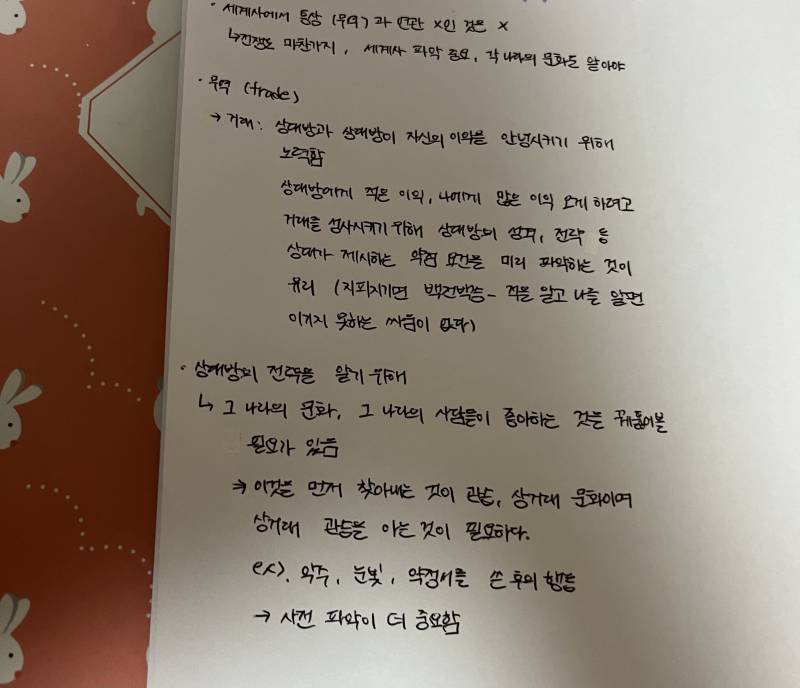 · 세계사에서 통상 (무역)과 연관 X인 것은 X
↳전쟁도 마찬가지, 세계사 파악 중요, 각 나라의 문화도 알아야
· 무역 (trade)
→ 거래: 상대방과 상대방이 자신의 이익을 안녕시키기 위해
노력함
상대방에게 적은 이익, 나에게 많은 이익 오게 하려고
거래를 성사시키기 위해 상대방의 성격, 전략 등
상대가 제시하는 약점 요건을 미리 파악하는 것이
유리 (지피지기면 백전백승- 적을 알고 나를 알면
이기지 못하는 싸움이 없다)
· 상대방의 전략을 알기 위해
↳ 그 나라의 문화, 그 나라의 사람들이 좋아하는 것을 꿰뚫어볼
필요가 있음
⇒ 이것을 먼저 찾아내는 것이 관습, 상거래 문화이며
상거래 관습을 아는 것이 필요하다.
ex). 악수, 눈빛, 약정서를 쓴 후의 행동
→ 사전 파악이 더 중요함